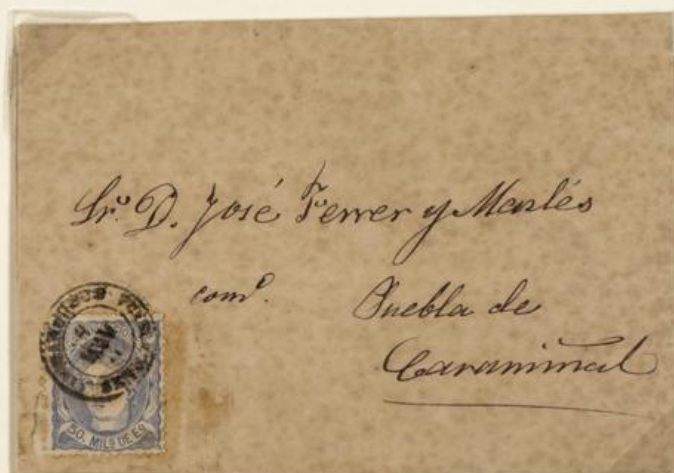 Sr. D. José Ferrer y Marlés
com.º
Puebla de
Caraminal
50. MILS DE EO